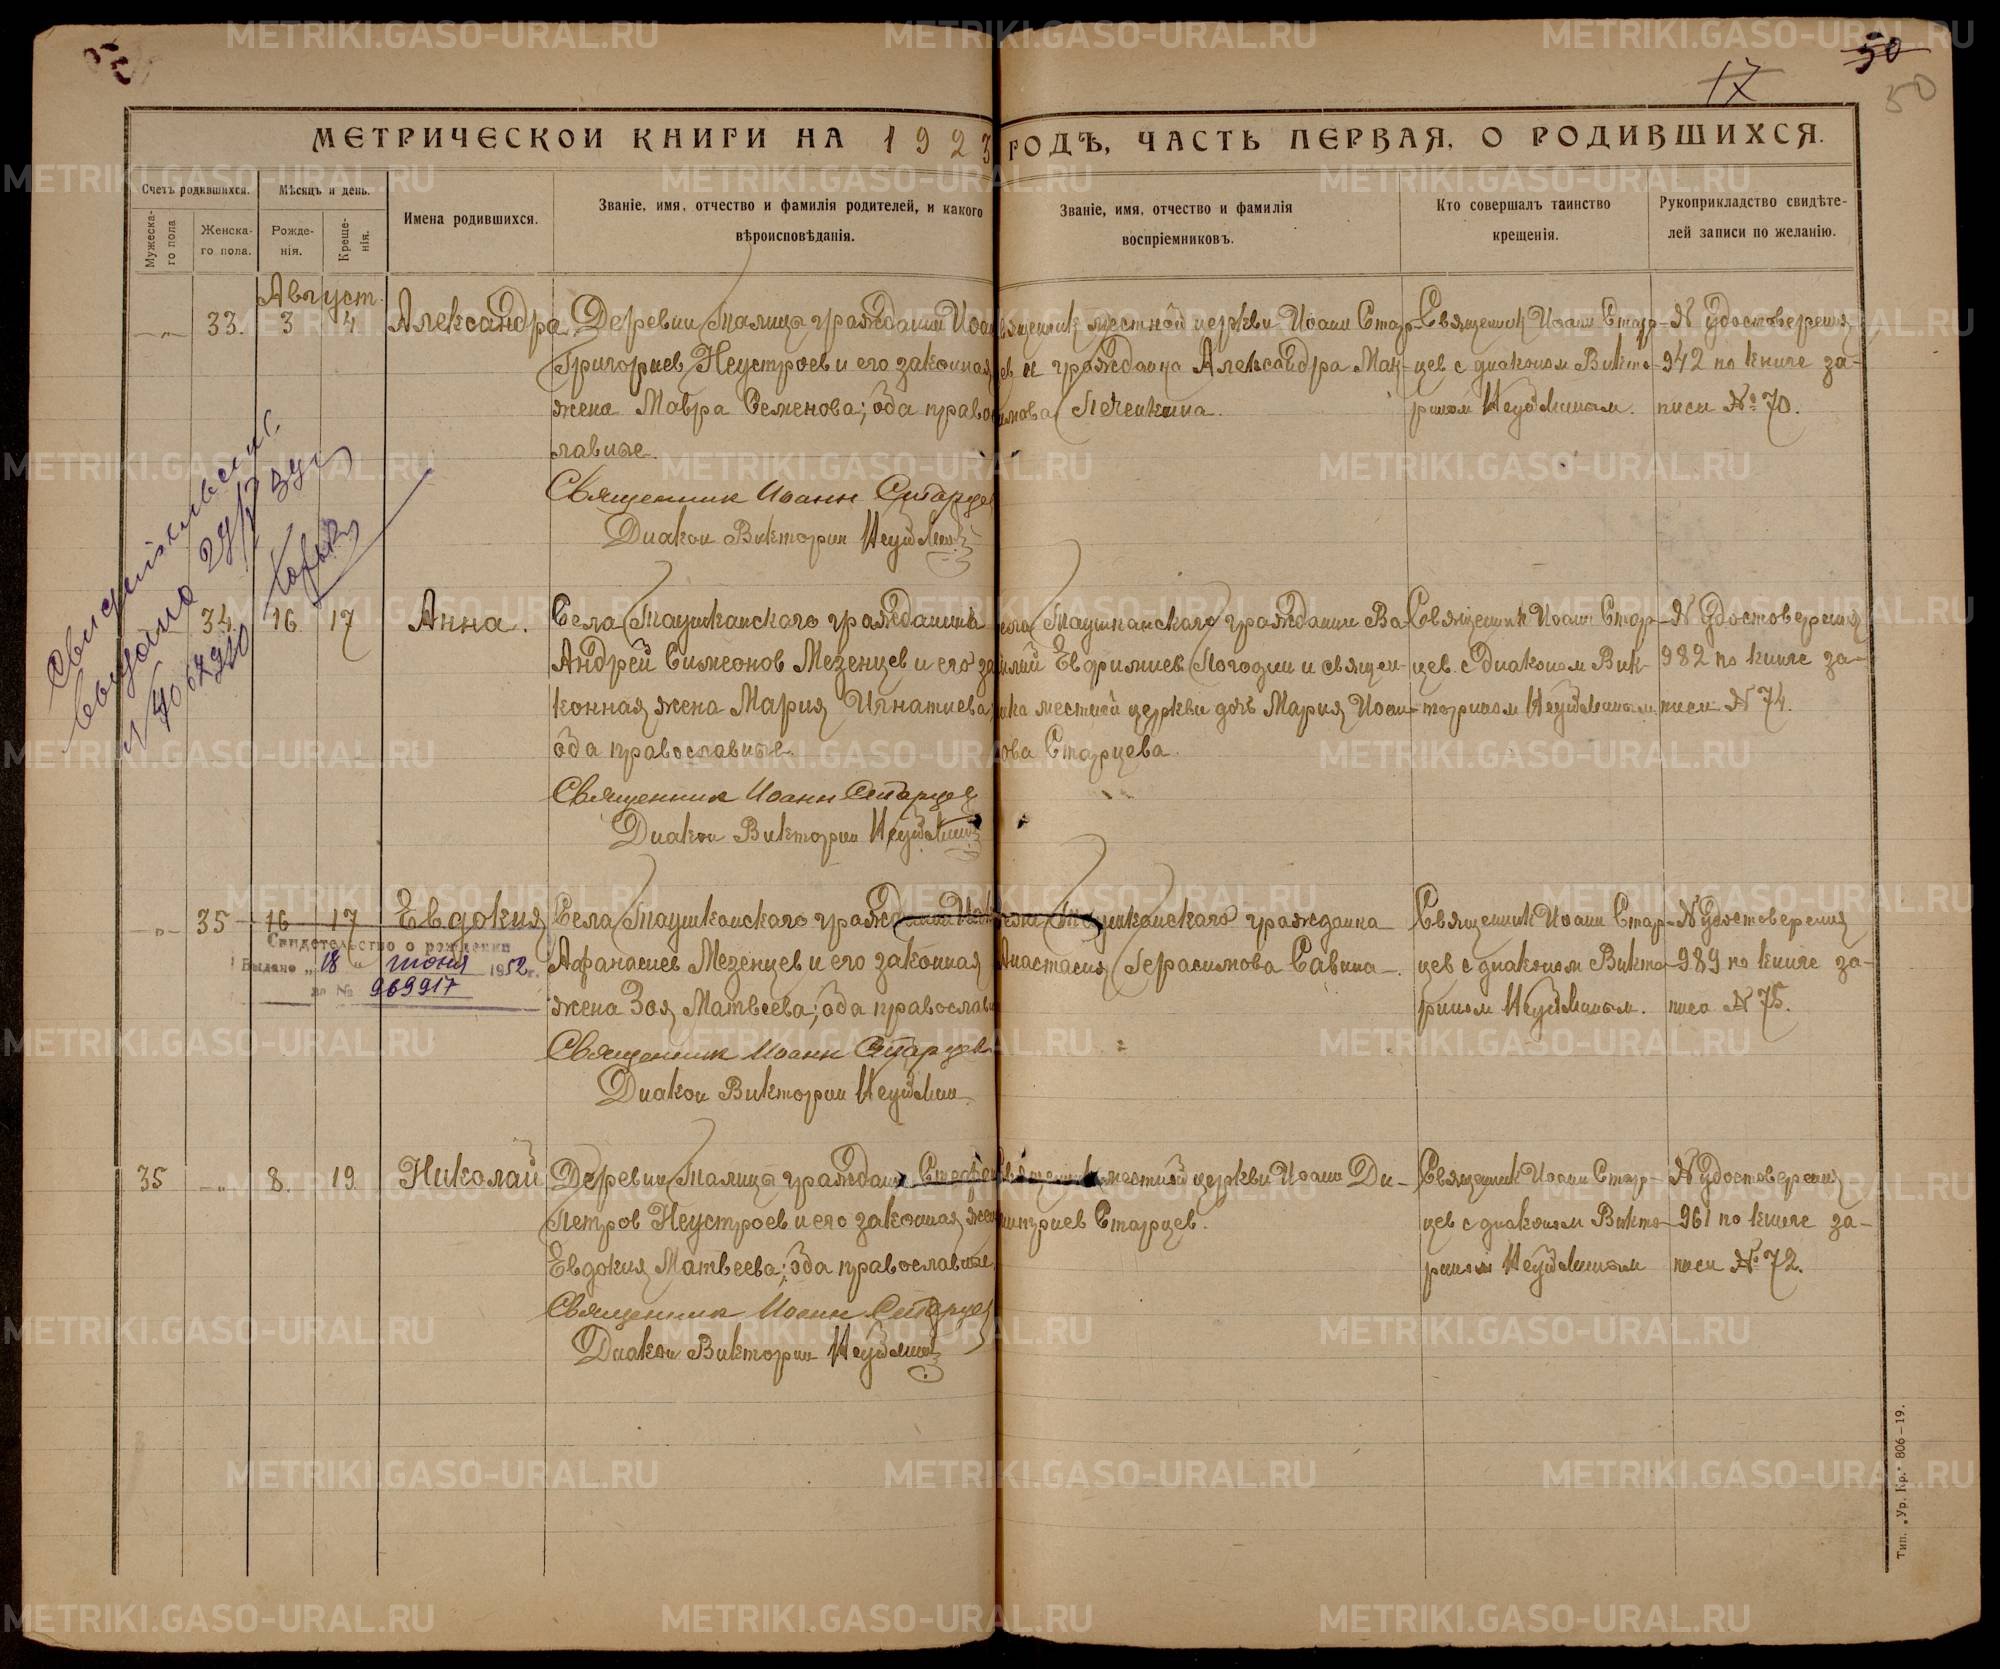 50
17
50
МЕТРИЧЕСКОЙ КНИГИ НА 1923 ГОДЪ, ЧАСТЬ ПЕРВАЯ, О РОДИВШИХСЯ.
Счетъ родившихся.
Мужеска-
го пола
Женска-
го пола.
Мѣсяцъ и день.
Рожде-
нія.
Креще-
нія.
Имена родившихся.
Званіе, имя, отчество и фамилія родителей, и какого
вѣроисповѣданія.
Званіе, имя, отчество и фамилія
воспріемниковъ.
Кто совершалъ таинство
крещенія.
Рукоприкладство свидѣте-
лей записи по желанію.
Август.
33. 3 4 Александра
Деревни Талица гражданин Иоан
Григориев Неустроев и его законная
жена Мавра Семенова; оба правос
лавные.
Священник Иоанн Старцев
Диакон Викторин Неуймин
священник местной церкви Иоанн Стар-
цев и гражданка Александра Мак-
симова Печенкина.
Священник Иоанн Стар-
цев с диаконом Викто-
рином Неуйминым.
N Удостоверения
942 по книге за-
писи № 70.
Свидетельство
выдано
34. 16 17 Анна.
Села Таушканского гражданин
Андрей Симеонов Мезенцев и его за
конная жена Мария Игнатиева
оба православные.
Священник Иоанн Старцев
Диакон Викторин Неуймин
села Таушканского гражданин Ва
силий Евфимиев Погодин и священ-
ника местной церкви дочь Мария Иоан-
нова Старцева.
Священник Иоанн Стар-
цев с диаконом Вик-
торином Неуйминым.
N Удостоверения
982 по книге за-
писи N 74.
35 16 17 Евдокия
Свидетельство о рождении
Выдано „18“ июня 1952 г.
за № 969917
Села Таушканского гражданин
Афанасиев Мезенцев и его законная
жена Зоя Матвеева; оба православн
Священник Иоанн Старцев
Диакон Викторин Неуймин.
села Таушканского гражданка
Анастасия Герасимова Савина.
Священник Иоанн Стар-
цев с диаконом Викто-
рином Неуйминым.
N Удостоверения
989 по книге за-
писи N 75.
35 8. 19 Николай
Деревни Талица гражданин Стефан
Петров Неустроев и его законная жена
Евдокия Матвеева; оба православные
Священник Иоанн Старцев
Диакон Викторин Неуймин
Священник местной церкви Иоанн Ди-
митриев Старцев.
Священник Иоанн Стар-
цев с диаконом Викто-
рином Неуйминым
N Удостоверения
961 по книге за-
писи № 72.
Тип. „Ур. Кр.“ 806—19.
METRIKI.GASO-URAL.RU